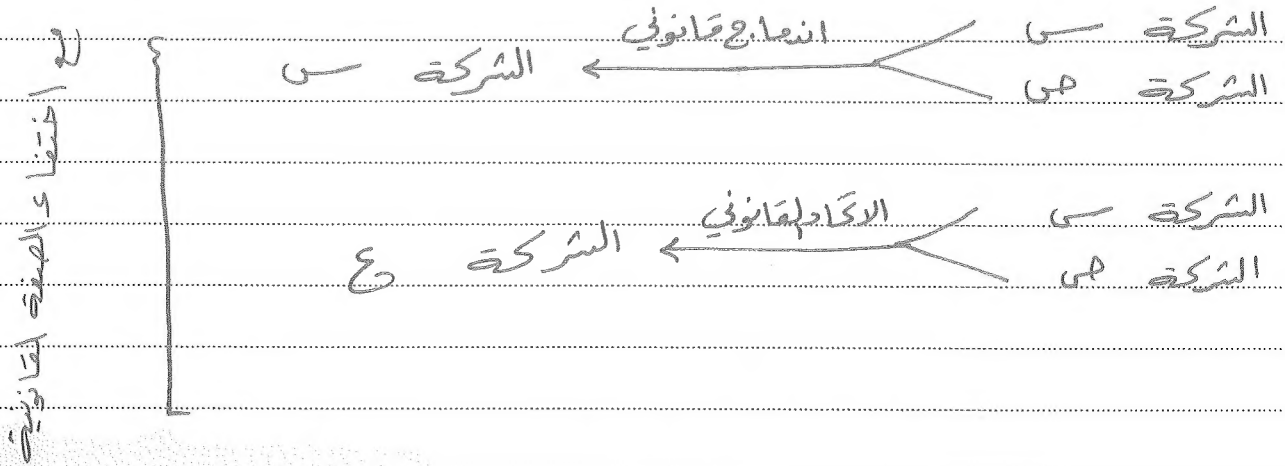 الشركة س
الشركة ص
اندماج قانوني
الشركة س
الشركة س
الشركة ص
الاتحاد القانوني
الشركة ع
اختفاء الصفة القانونية